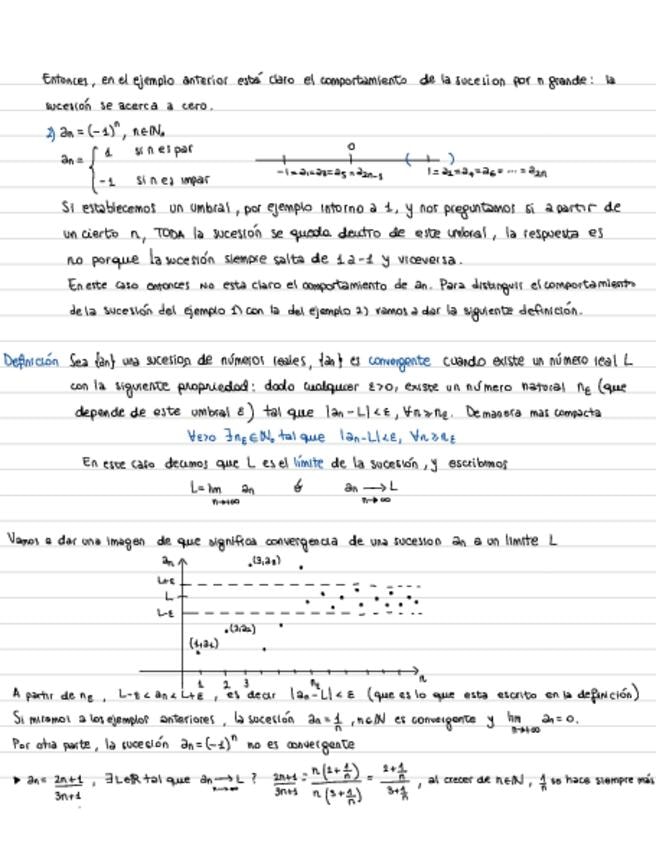 Entonces, en el ejemplo anterior está claro el comportamiento de la sucesion por n grande: la
sucesión se acerca a cero.
2) an = (-1)^n, n∈ℕ.
an = { 1 si n es par
-1 si n es impar
0
-1=a₁=a₃=a₅=a₂ₙ₋₁ 1=a₂=a₄=a₆=...=a₂ₙ
Si establecemos un umbral, por ejemplo intorno a 1, y nos preguntamos si a partir de
un cierto n, TODA la sucesión se queda dentro de este umbral, la respuesta es
no porque la sucesión siempre salta de 1 a -1 y viceversa.
En este caso entonces No esta claro el comportamiento de an. Para distinguir el comportamiento
de la sucesión del ejemplo 1) con la del ejemplo 2) vamos a dar la siguiente definición.
Definición Sea {an} una sucesion de números reales, {an} es convergente cuando existe un número real L
con la siguiente propiedad: dado cualquier ε>0, existe un número natural nε (que
depende de este umbral ε) tal que |an-L|<ε, ∀n≥nε. De manera mas compacta
∀ε>0 ∃nε∈ℕ, tal que |an-L|<ε, ∀n≥nε
En este caso decimos que L es el límite de la sucesión, y escribimos
L=lim n→+∞ an ó an → L n→∞
Vamos a dar una imagen de que significa convergencia de una sucesion an a un limite L
an (3,a₃)
L+ε
L
L-ε
(2,a₂)
(1,a₁)
1 2 3 nε n
A partir de nε, L-ε<an<L+ε, es decir |an-L|<ε (que es lo que esta escrito en la definición)
Si miramos a los ejemplos anteriores, la sucesión an=1/n, n∈ℕ es convergente y lim n→+∞ an=0.
Por otra parte, la sucesión an=(-1)^n no es convergente
▸ an= 2n+1/3n+1, ∃L∈ℝ tal que an → L n→∞ ? 2n+1/3n+1 = n(2+1/n)/n(3+1/n) = 2+1/n/3+1/n, al crecer de n∈ℕ, 1/n se hace siempre más